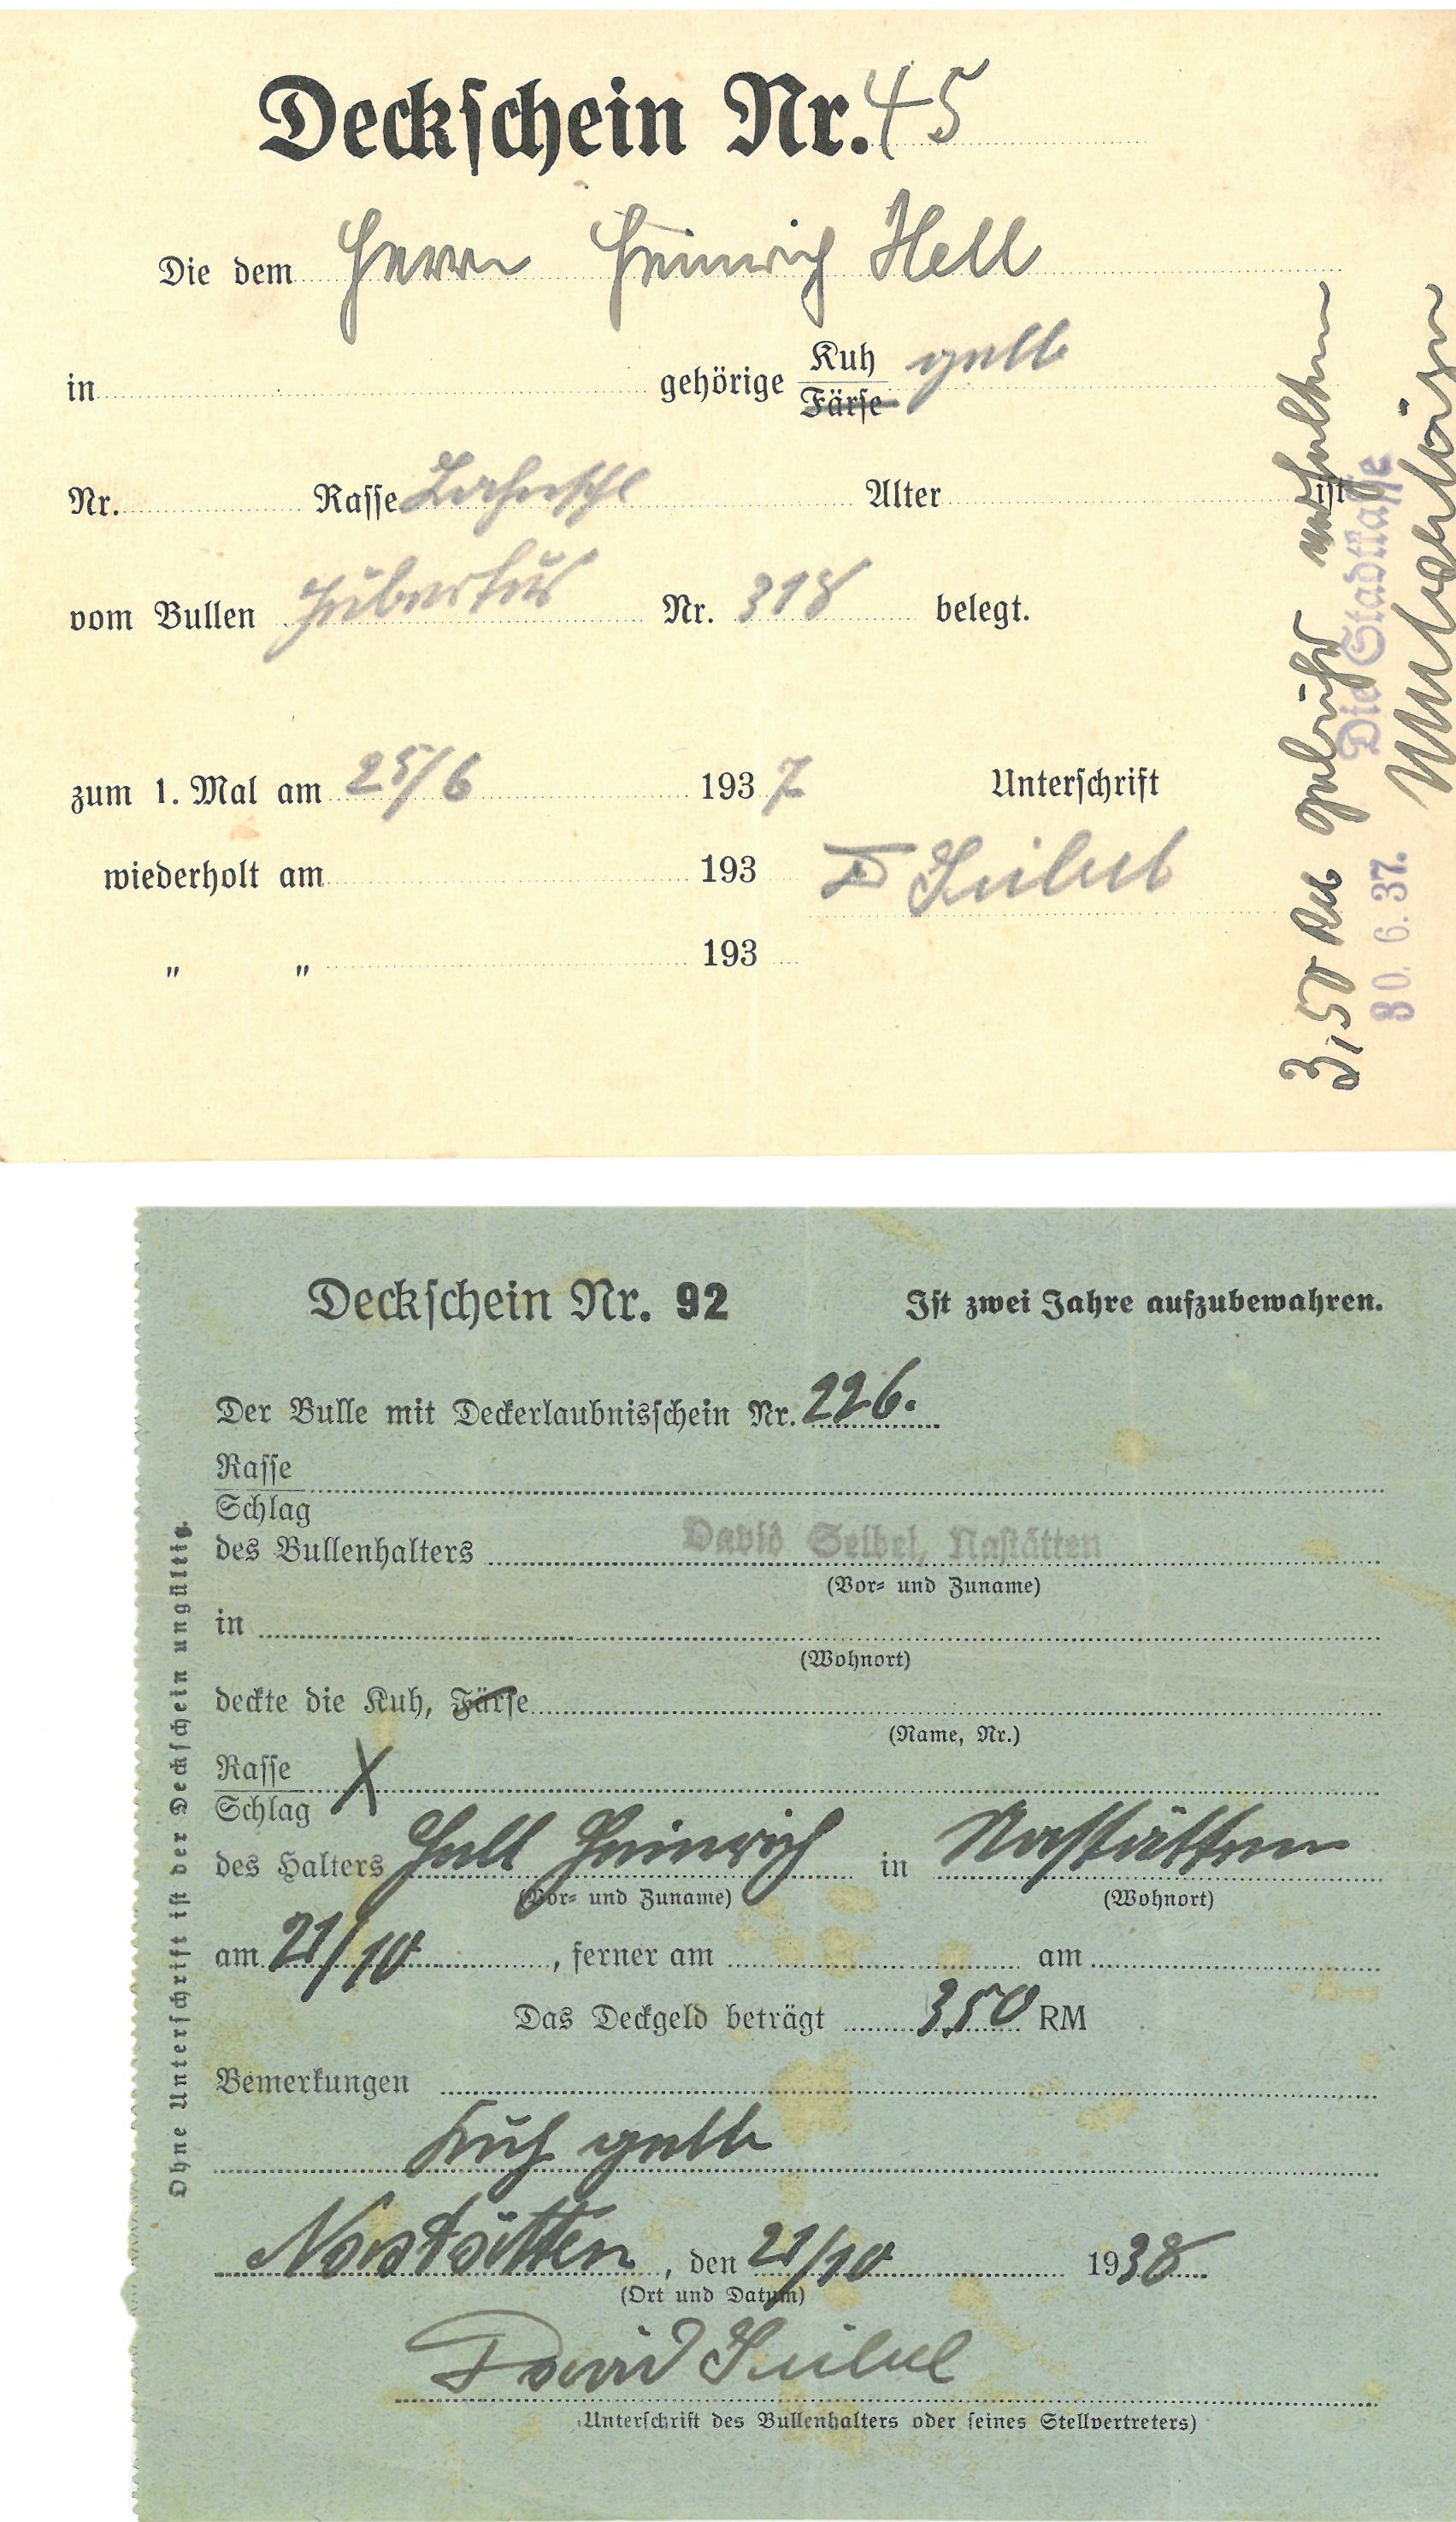 Deckschein Nr. 45
Die dem Herrn Heinrich Hell
in gehörige Kuh gelb
Färse
Nr. Rasse Lahnschl Alter ist
vom Bullen Hubertus Nr. 318 belegt.
zum 1. Mal am 25/6 1937 Unterschrift
wiederholt am 193 D Seibel
" " 193
3,50 RM Gebühr erhalten
Die Stadtkasse
30. 6. 37.
Deckschein Nr. 92 Ist zwei Jahre aufzubewahren.
Der Bulle mit Deckerlaubnisschein Nr. 226.
Rasse
Schlag
des Bullenhalters David Seibel, Nastätten
(Vor- und Zuname)
in
(Wohnort)
deckte die Kuh, Färse
(Name, Nr.)
Rasse X
Schlag
des Halters Hell Heinrich in Nastätten
(Vor- und Zuname) (Wohnort)
am 21/10, ferner am am
Das Deckgeld beträgt 3,50 RM
Bemerkungen
Kuh gelb
Nastätten, den 21/10 1938
(Ort und Datum)
David Seibel
(Unterschrift des Bullenhalters oder seines Stellvertreters)
Ohne Unterschrift ist der Deckschein ungültig.